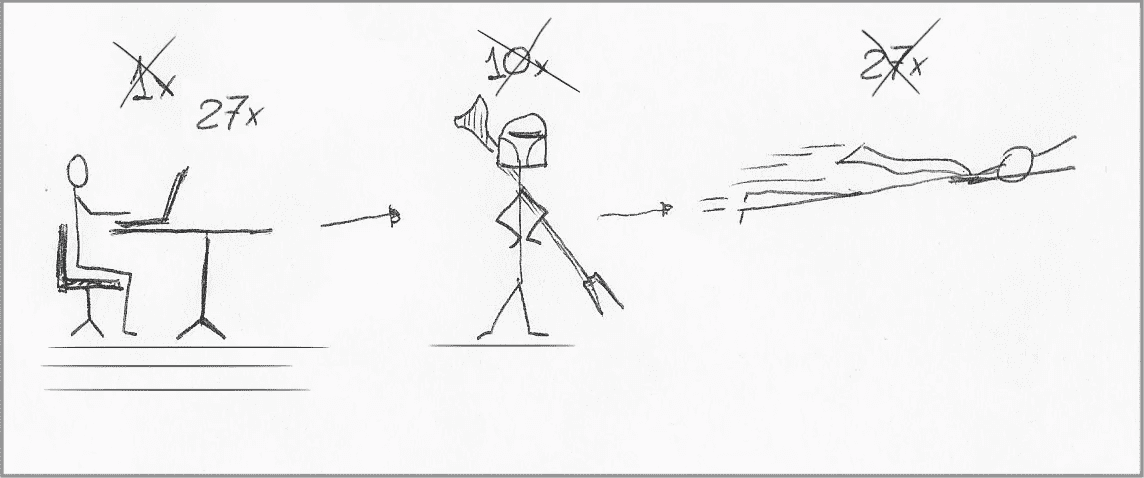 1x
27x
10x
27x